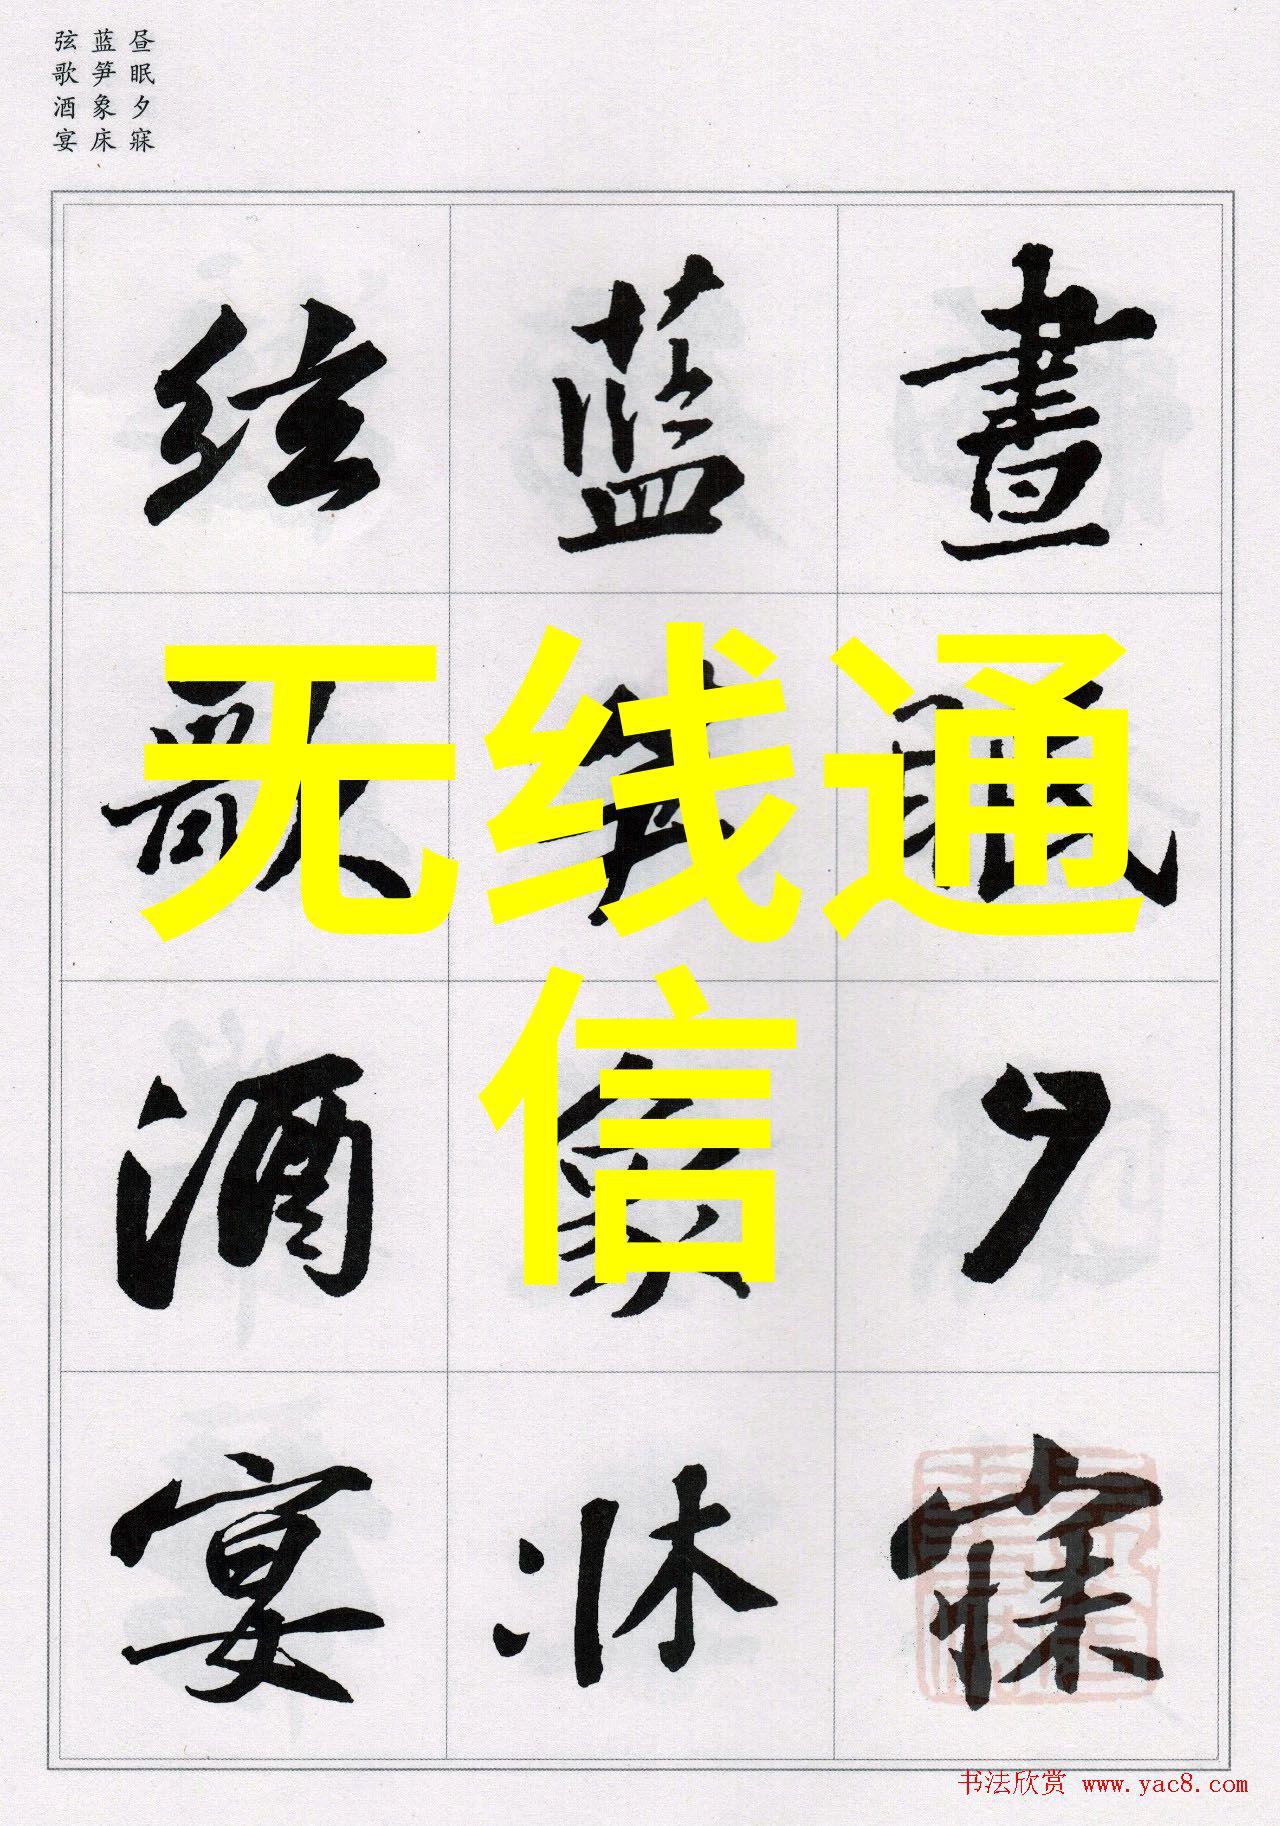 昼眠夕寐
蓝笋象床
弦歌酒宴
晝眠夕寐
蓝笋象牀
絃歌酒宴
无线通
信
书法欣赏 www.yac8.com